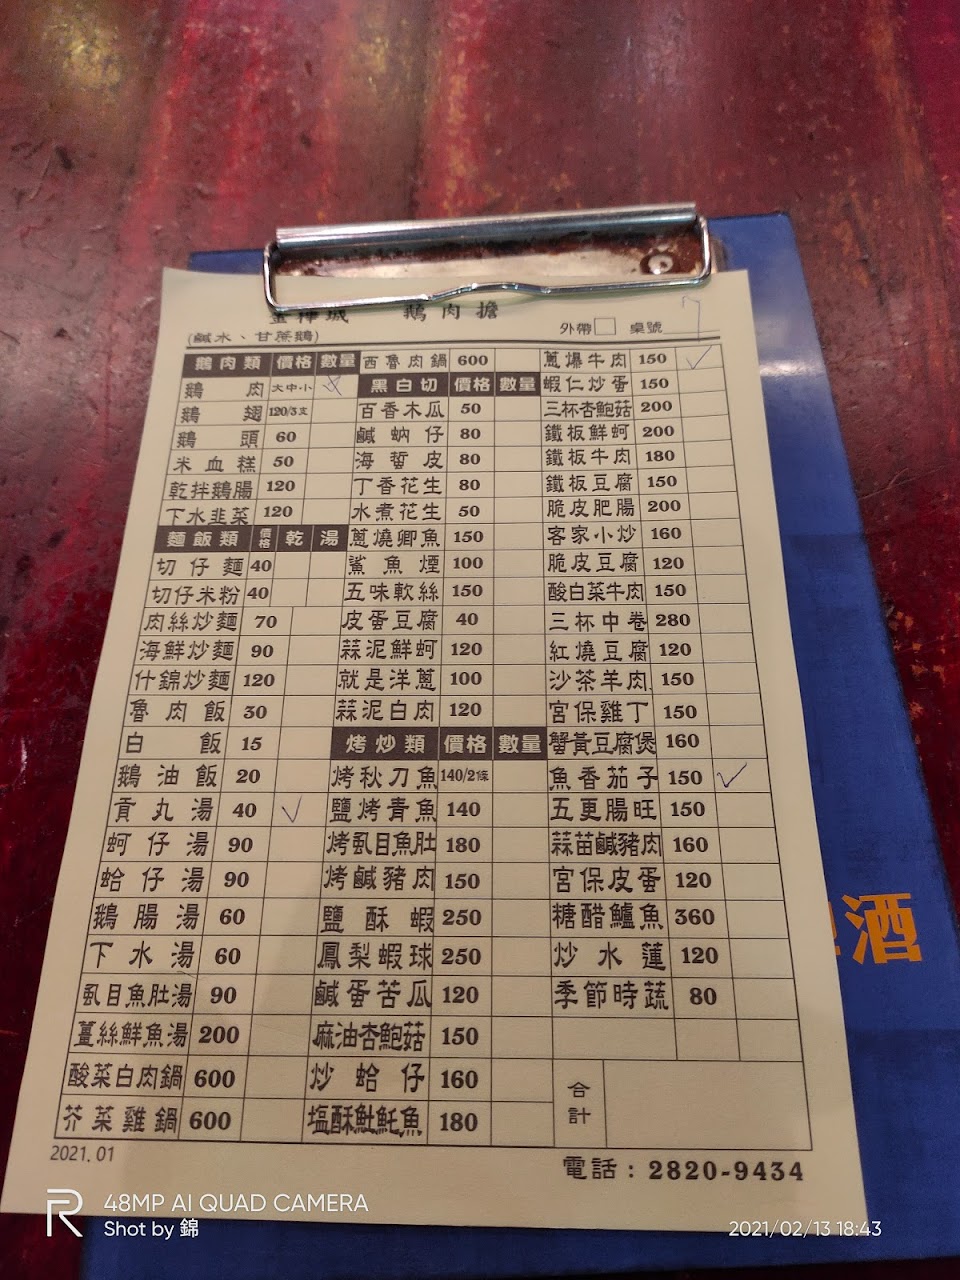 鵝肉擔
(鹹水、甘蔗鵝)
外帶□ 桌號 7
鵝肉類 價格 數量
鵝肉 大中小
鵝翅 120/3支
鵝頭 60
米血糕 50
乾拌鵝腸 120
下水韭菜 120
麵飯類 價格 乾 湯
切仔麵 40
切仔米粉 40
肉絲炒麵 70
海鮮炒麵 90
什錦炒麵 120
魯肉飯 30
白飯 15
鵝油飯 20
貢丸湯 40 ✓
蚵仔湯 90
蛤仔湯 90
鵝腸湯 60
下水湯 60
虱目魚肚湯 90
薑絲鮮魚湯 200
酸菜白肉鍋 600
芥菜雞鍋 600
西魯肉鍋 600
黑白切 價格 數量
百香木瓜 50
鹹蚋仔 80
海蜇皮 80
丁香花生 80
水煮花生 50
蔥燒鯽魚 150
鯊魚煙 100
五味軟絲 150
皮蛋豆腐 40
蒜泥鮮蚵 120
就是洋蔥 100
蒜泥白肉 120
烤炒類 價格 數量
烤秋刀魚 140/2條
鹽烤青魚 140
烤虱目魚肚 180
烤鹹豬肉 150
鹽酥蝦 250
鳳梨蝦球 250
鹹蛋苦瓜 120
麻油杏鮑菇 150
炒蛤仔 160
塩酥魠魠魚 180
蔥爆牛肉 150 ✓
蝦仁炒蛋 150
三杯杏鮑菇 200
鐵板鮮蚵 200
鐵板牛肉 180
鐵板豆腐 150
脆皮肥腸 200
客家小炒 160
脆皮豆腐 120
酸白菜牛肉 150
三杯中卷 280
紅燒豆腐 120
沙茶羊肉 150
宮保雞丁 150
蟹黃豆腐煲 160
魚香茄子 150 ✓
五更腸旺 150
蒜苗鹹豬肉 160
宮保皮蛋 120
糖醋鱸魚 360
炒水蓮 120
季節時蔬 80
合計
2021.01
電話：2820-9434
酒
48MP AI QUAD CAMERA
Shot by 錦
2021/02/13 18:43